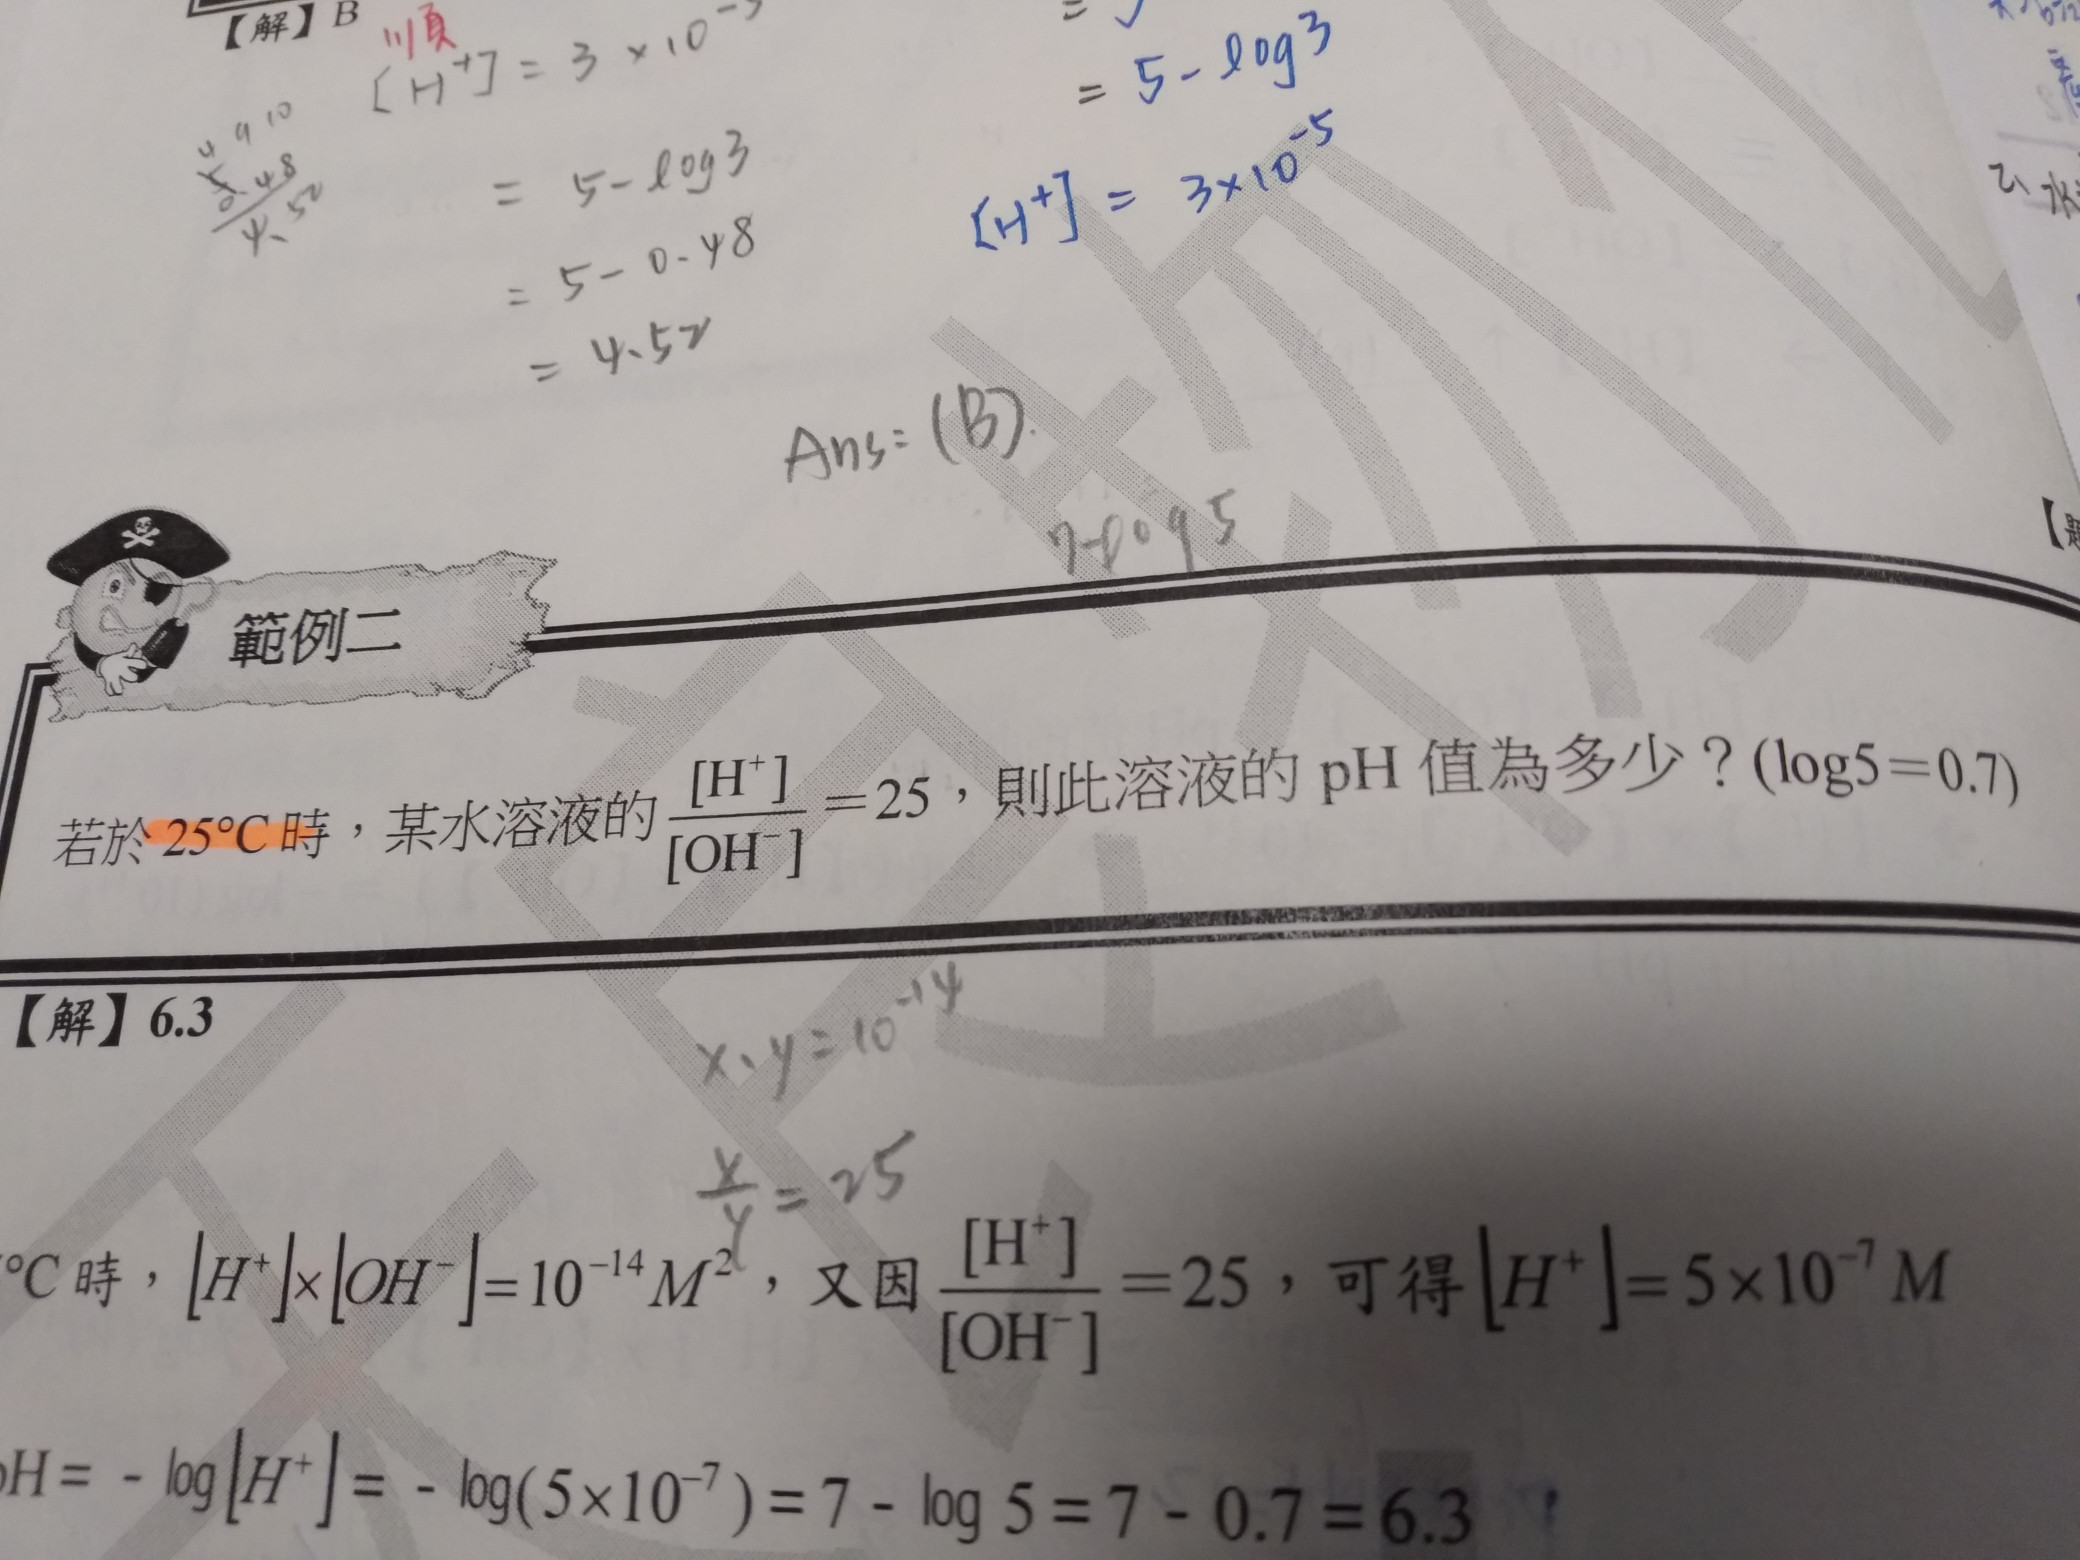 【解】B
順
[H⁺] = 3 × 10⁻⁵
= 5 - log3
4 9 10
5
0.48
4.52
= 5 - log3
= 5 - 0.48
= 4.52
[H⁺] = 3×10⁻⁵
Ans = (B).
7-log5
範例二
若於 25°C 時，某水溶液的 [H⁺]/[OH⁻] =25，則此溶液的 pH 值為多少？(log5=0.7)
【解】6.3
x、y = 10⁻¹⁴
x/y = 25
°C 時，[H⁺]×[OH⁻]=10⁻¹⁴ M²，又因 [H⁺]/[OH⁻] =25，可得 [H⁺]= 5×10⁻⁷ M
pH = - log[H⁺] = - log(5×10⁻⁷) = 7 - log 5 = 7 - 0.7 = 6.3